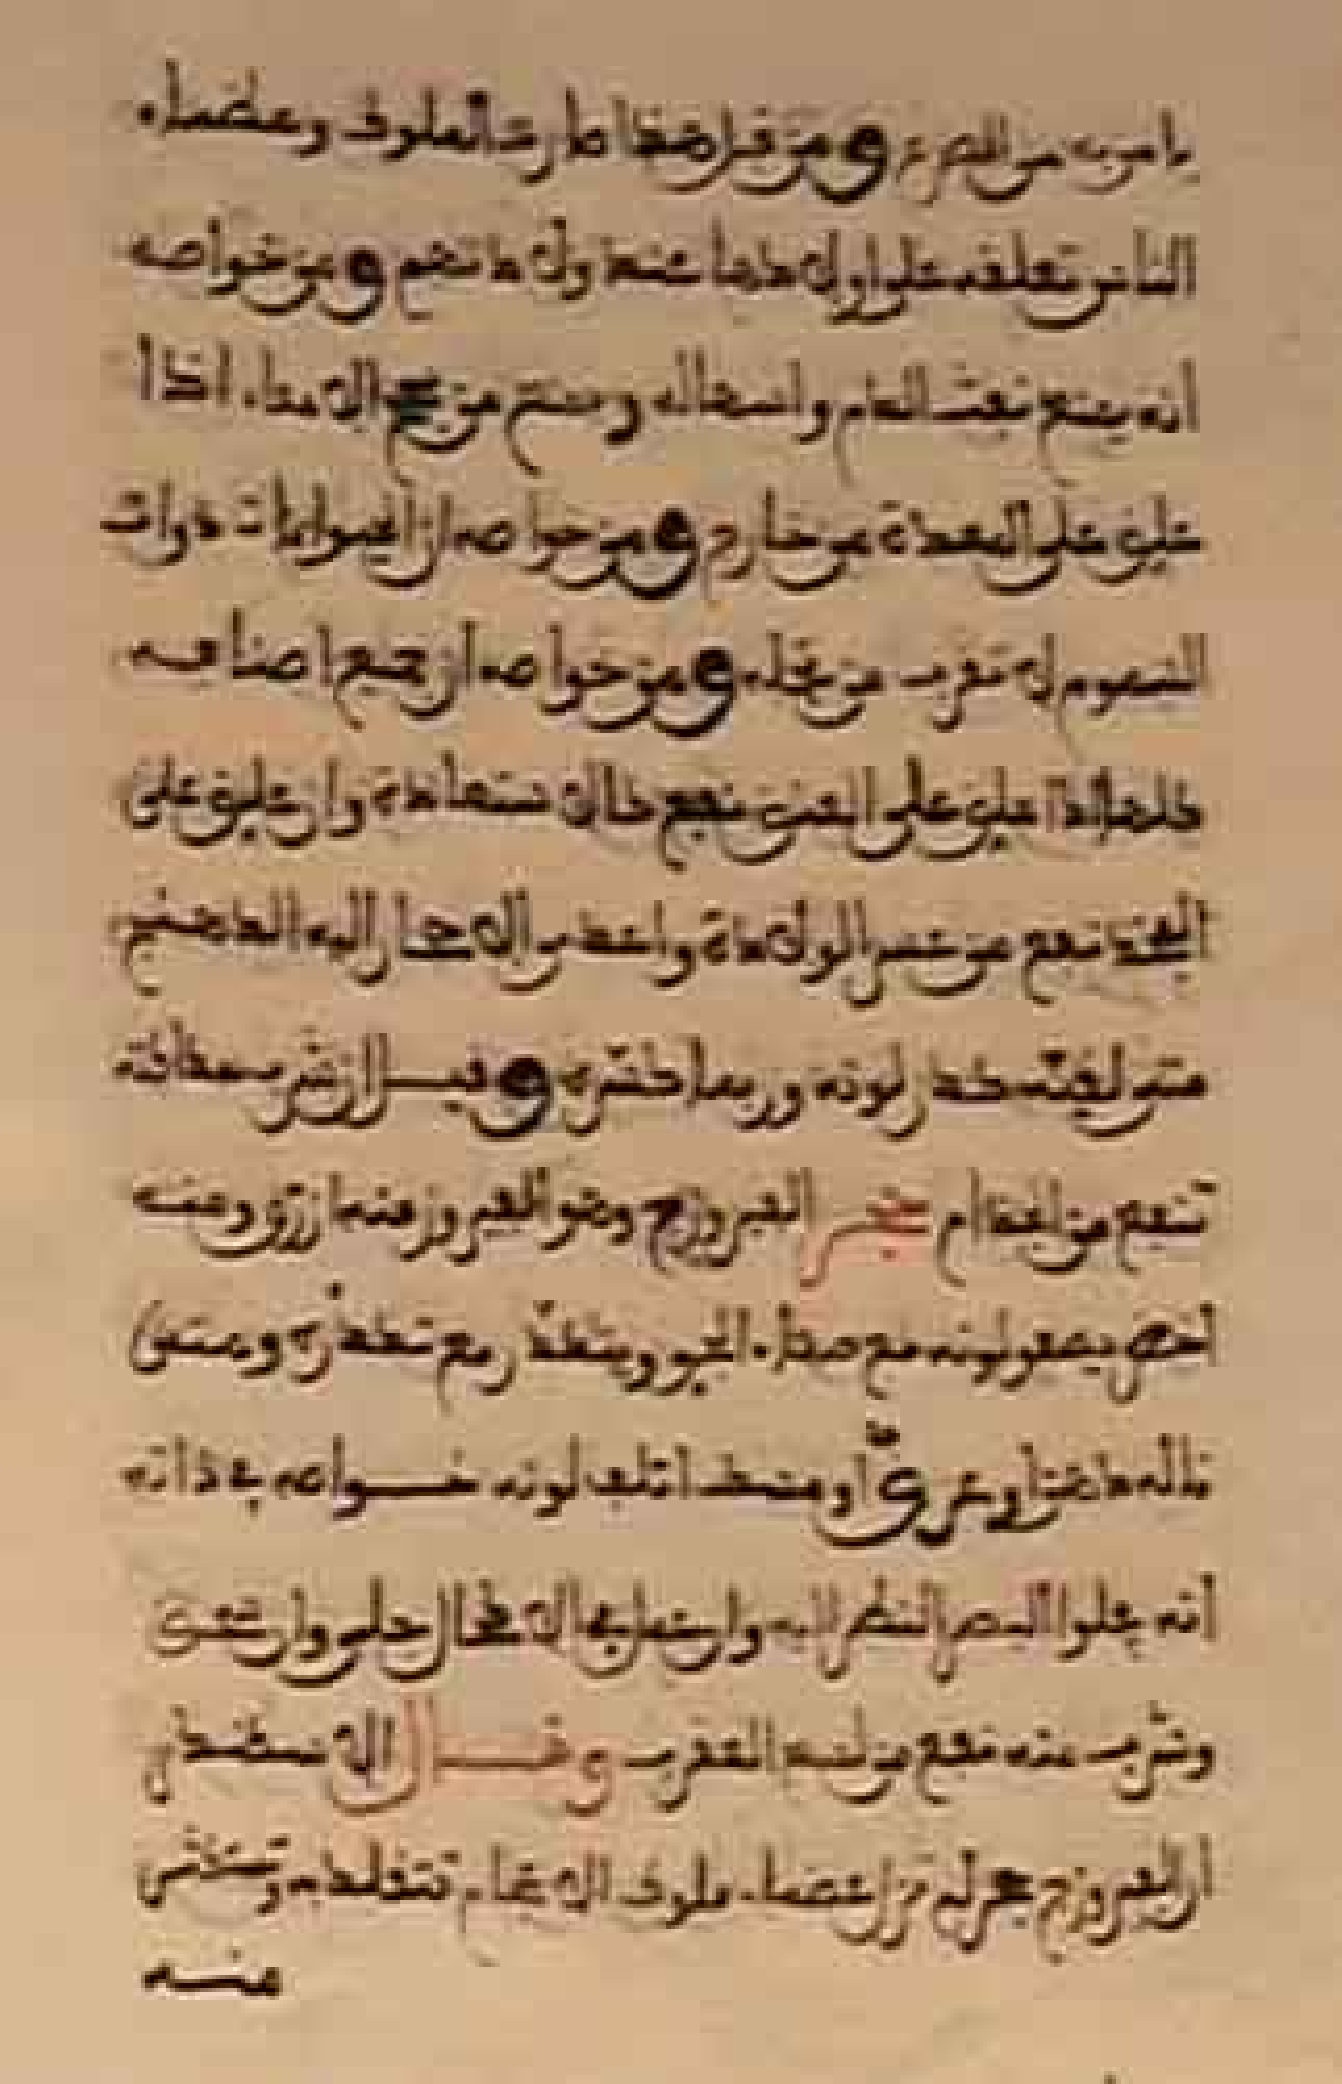 يا من به من الصرع ومن قرا هذا صارت الملوك وعظماء
الناس تعلقه على اولادها عند ولادتهم ومن خواصه
أنه يمنع نفث الدم واسهاله ويمنع من جميع الامعاء اذا
علق على المعدة من خارج ومن خواصه ان الحيوانات ذوات
السموم لا تقرب من محله ومن خواصه أن جميع اصنافه
كلها إذا علق على العنق نفع كالاستعاذة وان علق على
الفخذ نفع من عسر الولادة واخضر الاحجار اليه الدهنج
متى لقيته كدر لونه وربما كسره وقيل ان شرب سحاقته
تنفع من الجذام حجر الفيروزج وهو الفيروز منه ازرق ومنه
أخضر يصفو لونه مع صفاء الجو ويتكدر مع تكدره ومتى
ناله دهن او عرق او مسك اتلف لونه خواصه في ذاته
أنه يجلو البصر النظر اليه واستعمل في الاكحال جلى وان سحق
وشرب منه نفع من لسع العقرب وقال الاسكندر
ان الفيروزج حجر لم تزل عظماء ملوك الاعجام تتقلد به وتستكثر
منه